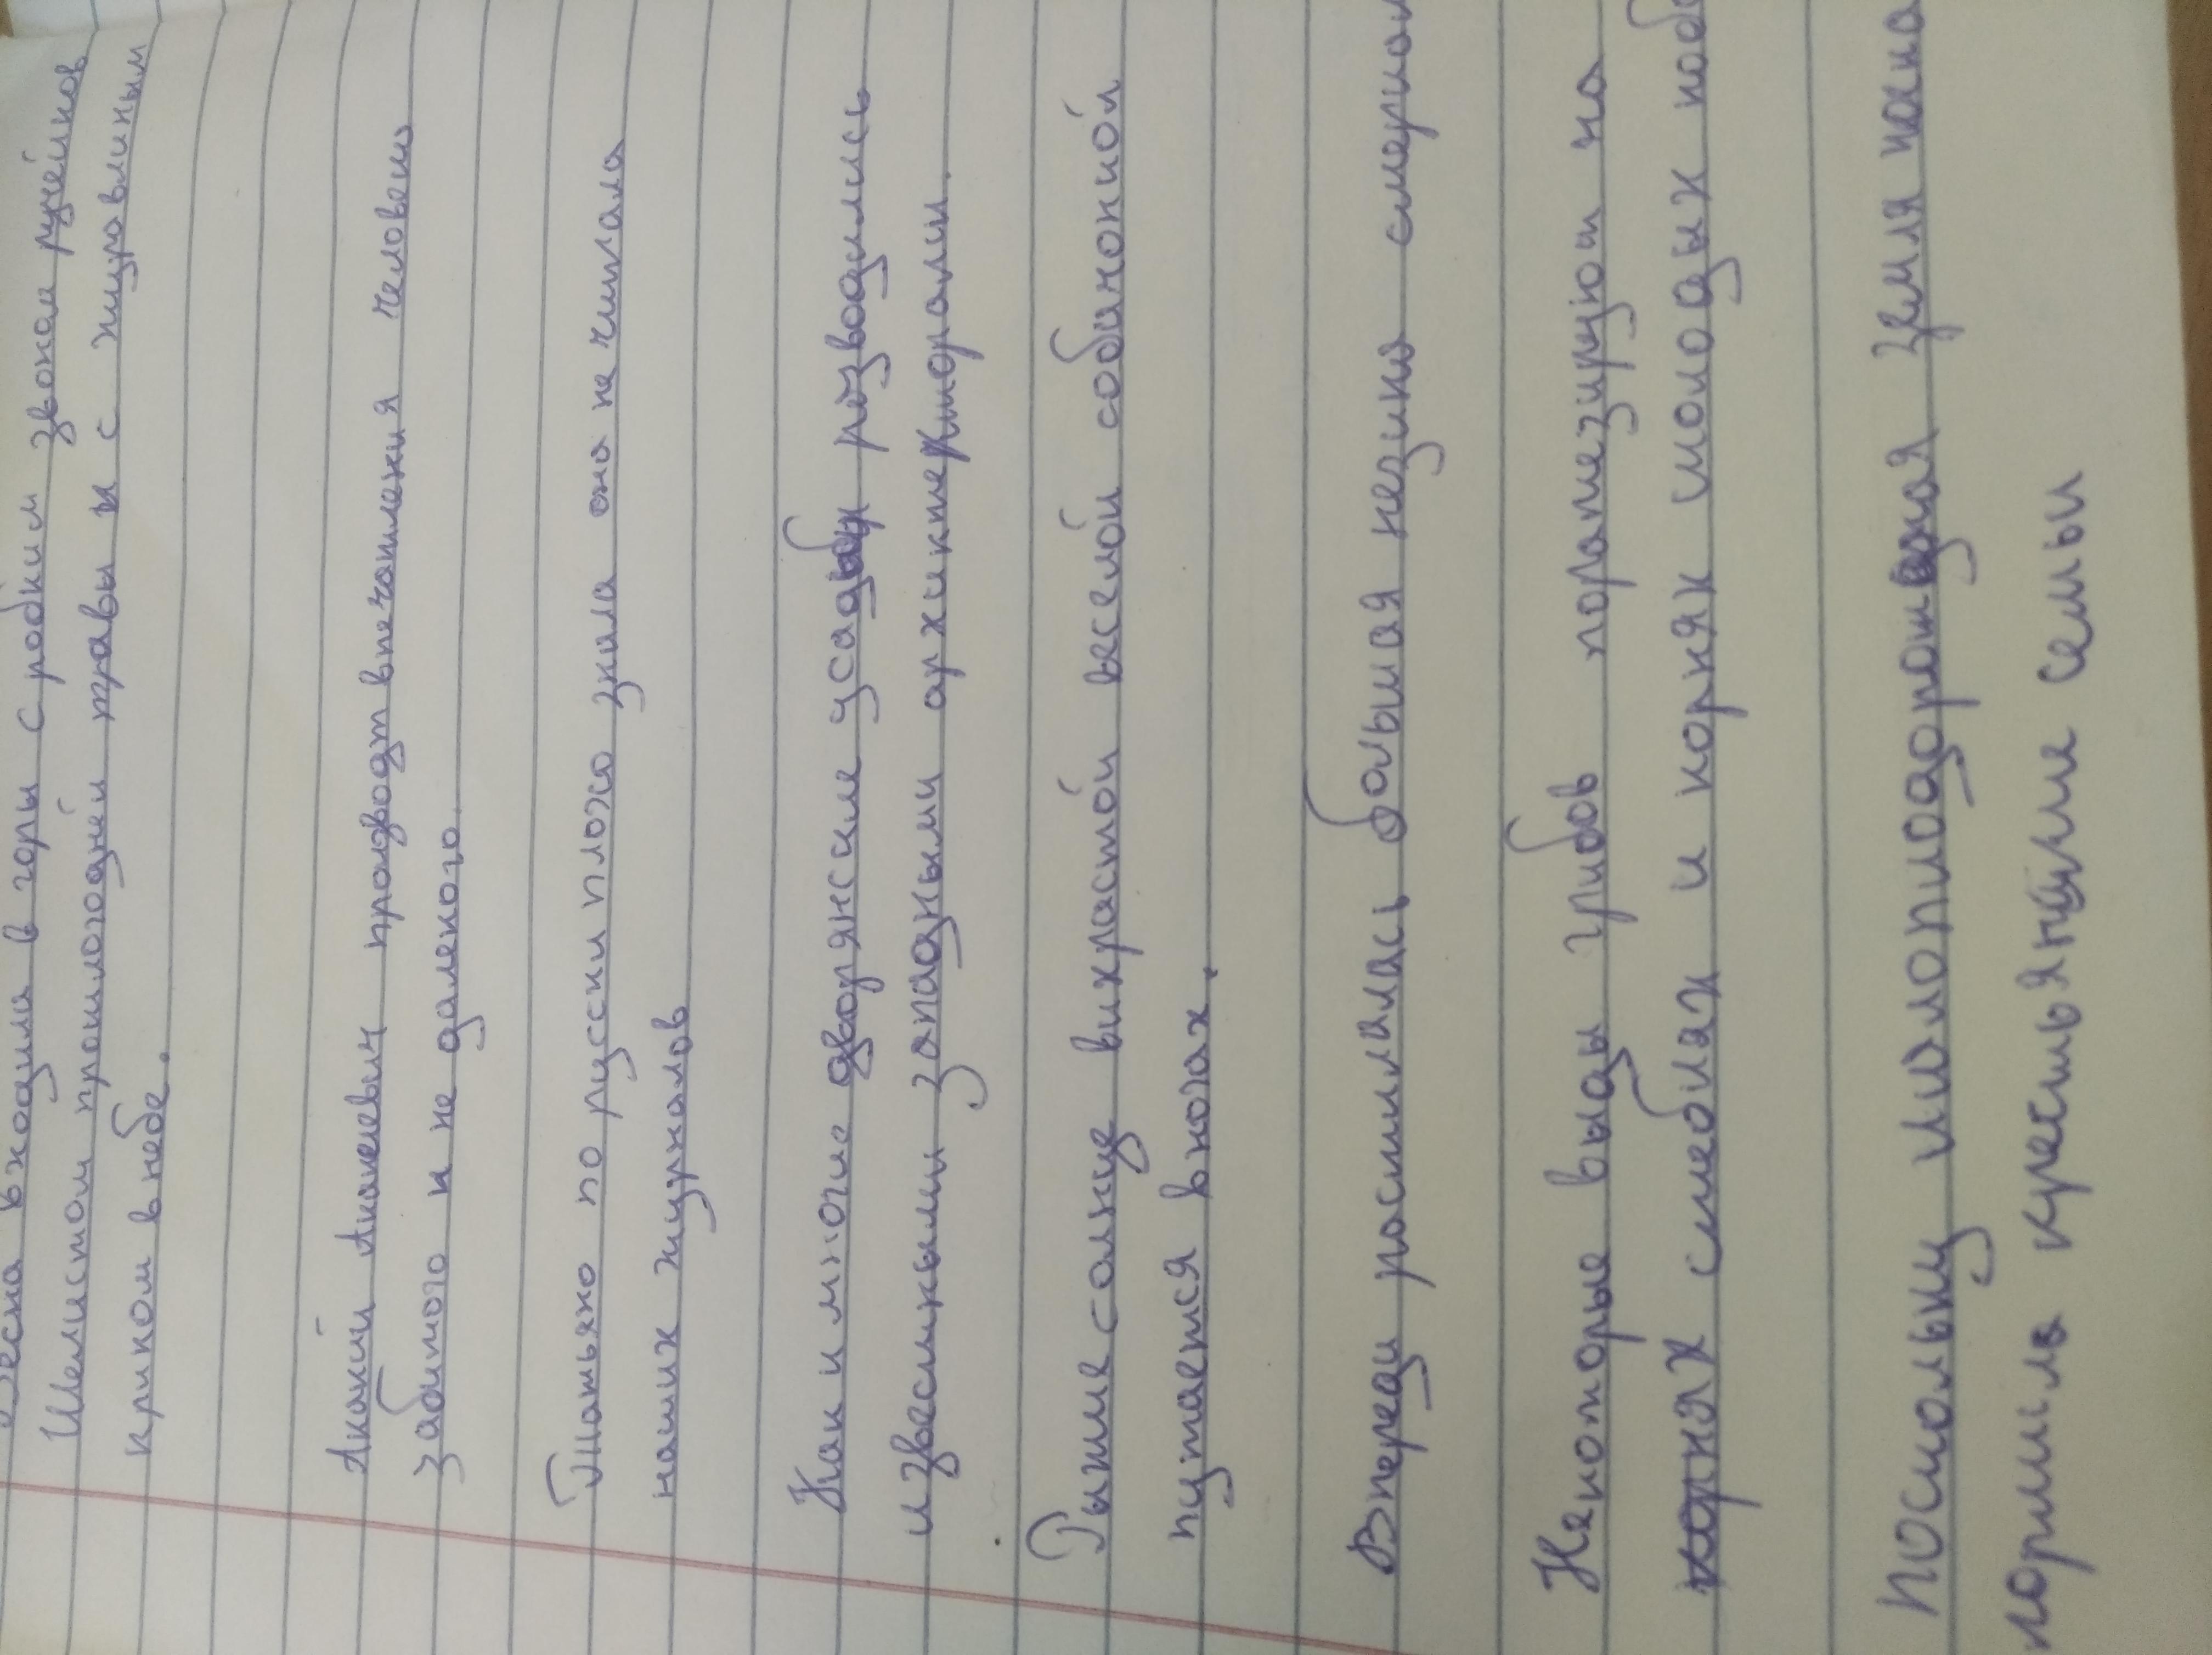 Весна входила в горы с робким звоном ручейков
Шелистом прошлогодней травы и с журовлиным
криком в небе.
Акакий Акакевич проозводт впечатлекия человека
забитого и не далекого
Татьяно по русски плохо знала она не читала
наших журналов
Как и многие дворянские усадбы розводились
известными западными архиктекторами.
Рыжие солнце вихрастой веселой собачонкой
путается в ногах.
Впереди расстилалась большая незико
Некоторые виды грибов поратезируют на
стеблях и корнях молодых
Поскольку малоплодородная земля
кормила крестьянские семьи